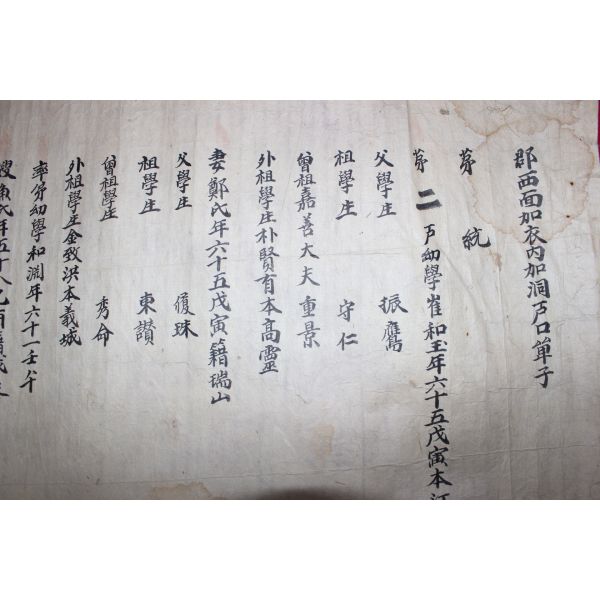 郡西面加衣內加洞戶口單子
第 統
第二戶幼學崔和玉年六十五戊寅本江
父學生 振鷹
祖學生 守仁
曾祖嘉善大夫重景
外祖學生朴賢有本高靈
妻鄭氏年六十五戊寅籍瑞山
父學生 珠
祖學生 東讚
曾祖學生 秀命
外祖學生金致洪本義城
率弟幼學和淵年六十一壬午
嫂 氏年五十八